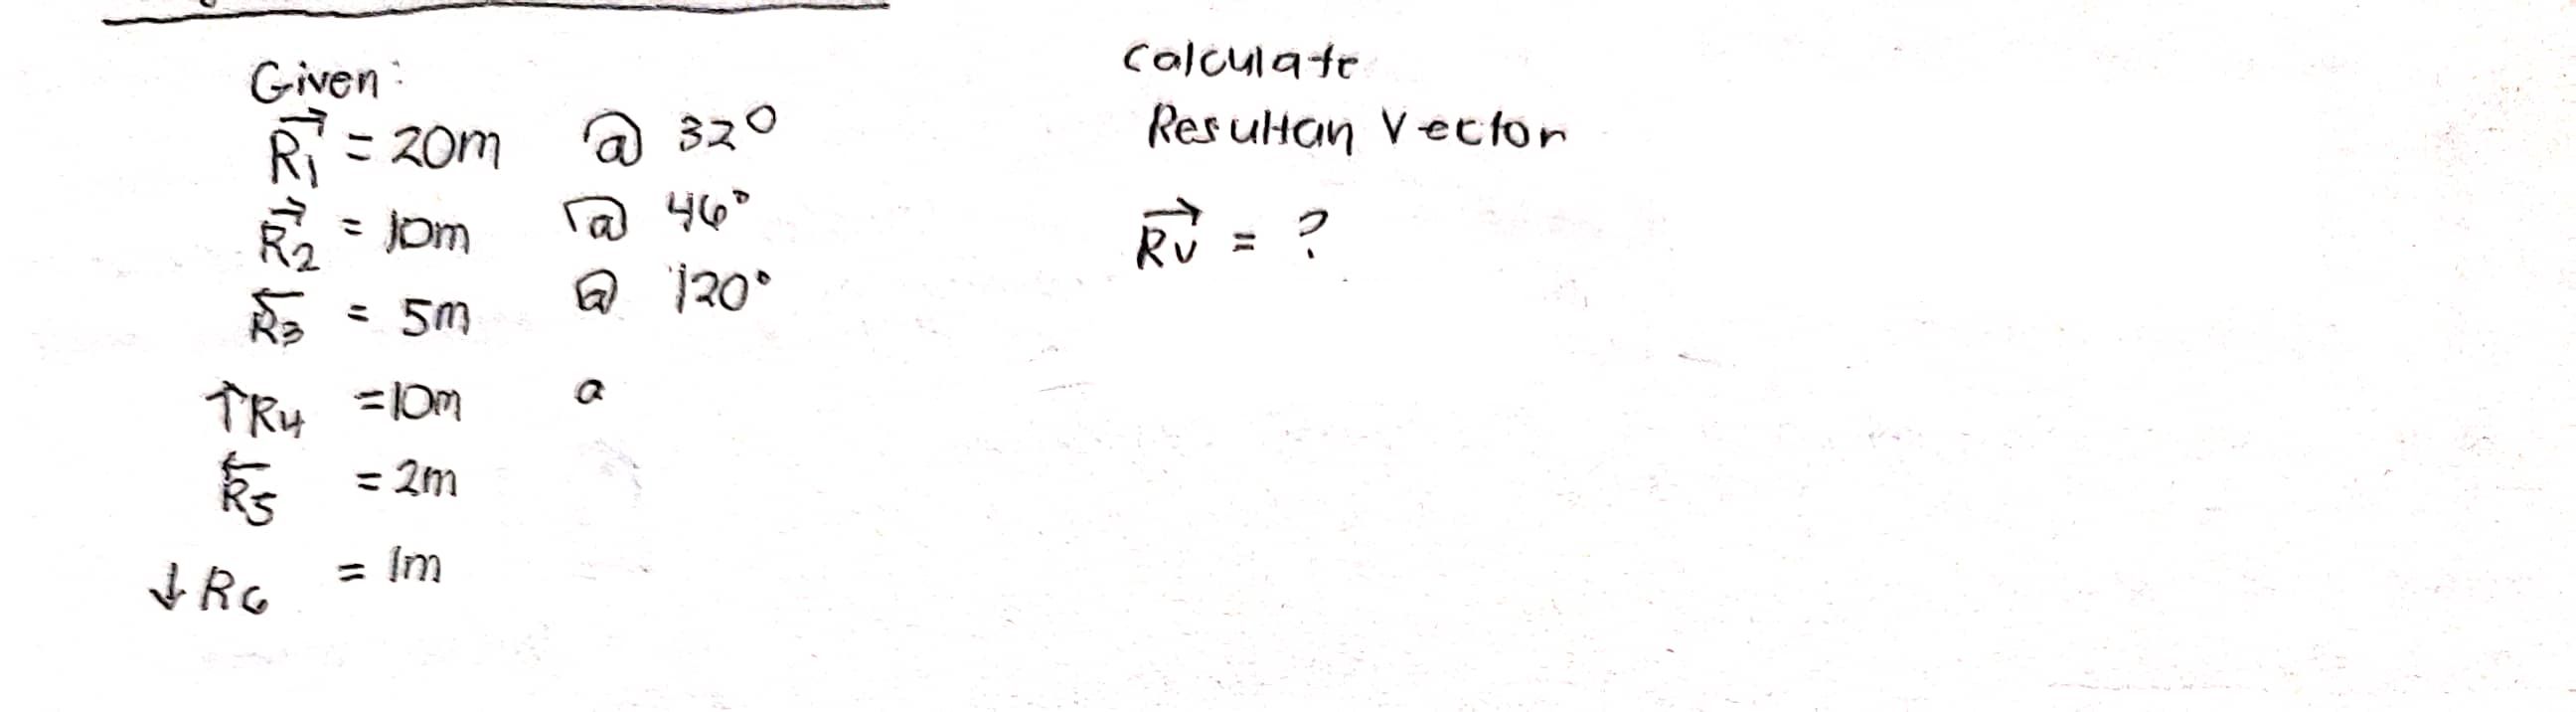 Given:
R1 = 20m @ 32°
R2 = 10m @ 46°
R3 = 5m @ 120°
↑R4 = 10m a
R5 = 2m
↓R6 = 1m
Calculate
Resultan Vector
RV = ?